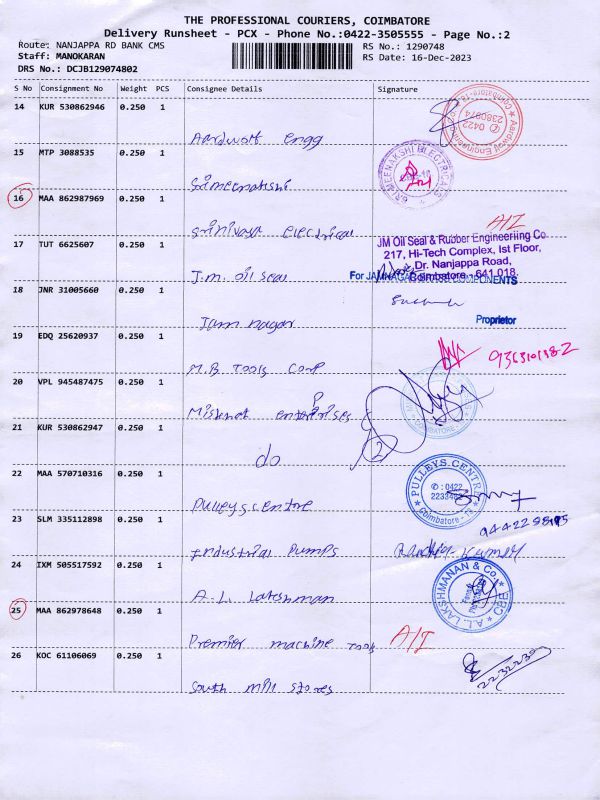 THE PROFESSIONAL COURIERS, COIMBATORE
Delivery Runsheet - PCX - Phone No.:0422-3505555 - Page No.:2
Route: NANJAPPA RD BANK CMS
RS No.: 1290748
Staff: MANOKARAN
RS Date: 16-Dec-2023
DRS No.: DCJB129074802
S No Consignment No Weight PCS Consignee Details Signature
14 KUR 530862946 0.250 1
Aardwolf Engg
15 MTP 3088535 0.250 1
Srimeenakshi
SRI MEENAKSHI ELECTRICALS
16 MAA 862987969 0.250 1
Srinivasa electrical
A/I
17 TUT 6625607 0.250 1
J.M. oil seal
JM Oil Seal & Rubber Engineering Co
217, Hi-Tech Complex, Ist Floor,
Dr. Nanjappa Road,
Coimbatore - 641 018.
18 JNR 31005660 0.250 1
Jam nagar
COMPONENTS
Proprietor
19 EDQ 25620937 0.250 1
M.B Tools Corp
20 VPL 945487475 0.250 1
enterprises
21 KUR 530862947 0.250 1
do
22 MAA 570710316 0.250 1
Pulleys centre
PULLEYS CENTRE
✆ : 0422
Coimbatore - 18
23 SLM 335112898 0.250 1
Industrial Pumps
24 IXM 505517592 0.250 1
A.L. Lakshman
A.L. LAKSHMANAN & Co. CBE
25 MAA 862978648 0.250 1
Premier machine tools
A/I
26 KOC 61106069 0.250 1
South mill stores
2232239